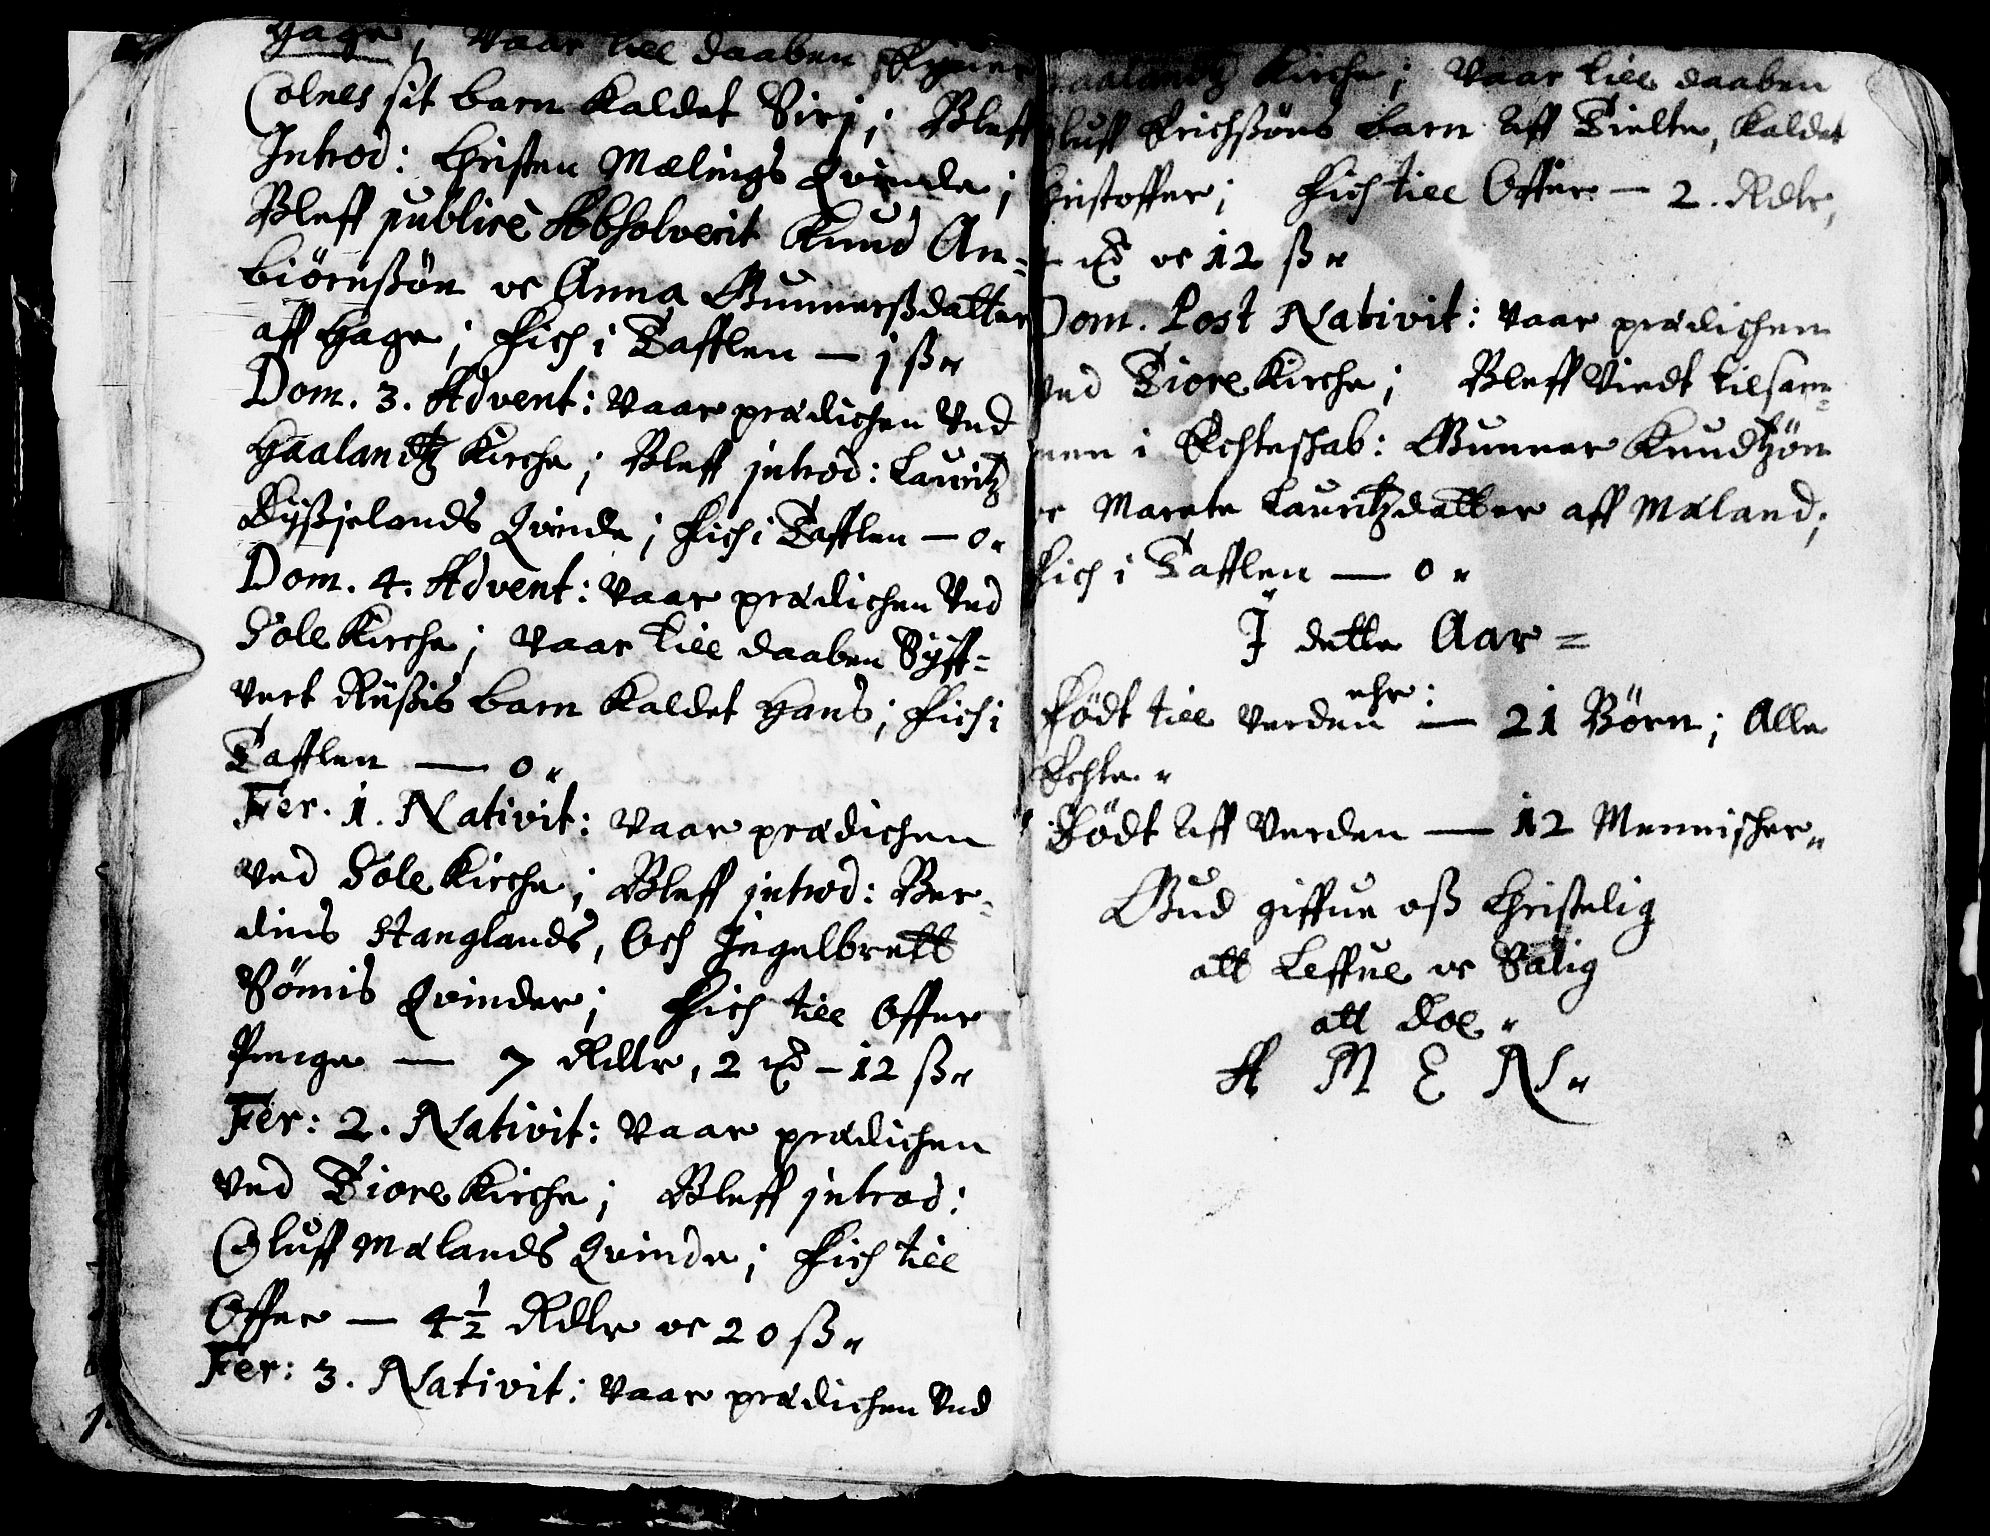 Hage; Vaar till daaben
Colnes sit barn kaldet Siri; Bleff
Introd: Christen Mælings Qvinde;
Bleff publicè Absolverit Knud An-
biörnßön oc Anna Gunnerßdatter
aff Hage; Fich i Tafflen — j ß
Dom. 3. Advent: Vaar prædichen Ved
Haalandtz Kirche; Bleff introd: Lauritz
Qvinde; Fich i Tafflen — 0
Dom. 4. Advent: Vaar prædichen Ved
Sole Kirche; Vaar till daaben Syff-
vert Rüßis barn kaldet Hans; Fich i
Tafflen — 0
Fer. 1. Nativit: Vaar prædichen
Ved Sole Kirche; Bleff introd: Ber-
dins Stanglands, Och Ingelbrett
Sömis Qvinder; Fich till Offer
Penge — 7 Rdlr, 2 — 12 ß
Fer: 2. Nativit: Vaar prædichen
Ved Tiore Kirche; Bleff introd:
Oluff Mælands Qvinde; Fich till
Offer — 4 1/2 Rdlr oc 20 ß
Fer: 3. Nativit: Vaar prædichen Ved
Haalandtz Kirche; Vaar till daaben
Oluff Erichßöns barn aff Tielte, kaldet
Christoffer; Fich till Offer — 2. Rdlr,
oc 12 ß
Dom. Post Nativit: Vaar prædichen
Ved Tiore Kirche; Bleff Viedt tilsam-
men i Echteskab: Gunner Knudtzön
oc Marete Lauritzdatter aff Mæland;
Fich i Tafflen — 0
I dette Aar =
Födt till Verden ehr: — 21 Börn; Alle
Echte
Dödt aff Verden — 12 Mennischer
Gud giffue oß Christelig
att Leffue oc Salig
att döe
A M E N